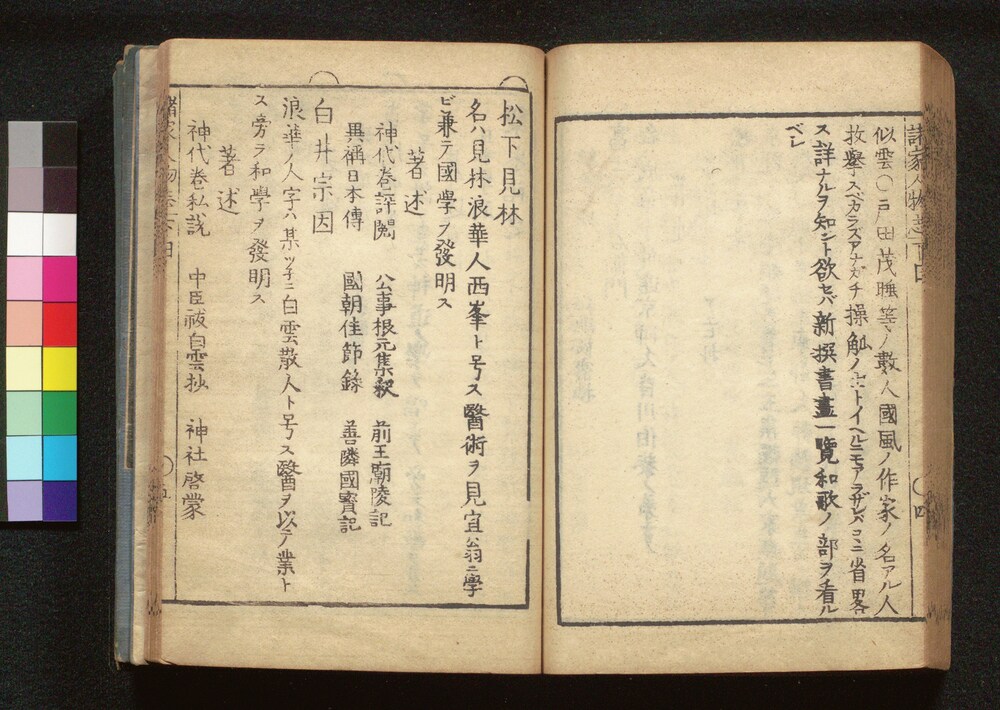 諸家人物志下四
似雲〇戸田茂睡等ノ數人國風ノ作家ノ名アル人
枚擧スベカラズアナガチ操觚ノ
ニトイヘルニモアラザレバコヽニ省畧
ス詳ナルヲ知ント欲セバ新撰書畫一覽和歌ノ部ヲ看ル
ベシ
〇四
松下見林
名ハ見林浪華人西峯ト号ス醫術ヲ見宜翁ニ學
ビ兼テ國學ヲ發明ス
著述
神代巻評閲 公事根元集釈 前王廟陵記
異稱日本傳 國朝佳節錄 善隣國寳記
白井宗因
浪華ノ人字ハ某ツ子ニ白雲散人ト号ス醫ヲ以テ業ト
ス旁ラ和學ヲ發明ス
著述
神代巻私説 中臣祓白雲抄 神社啓蒙
諸家人物志下四
〇五